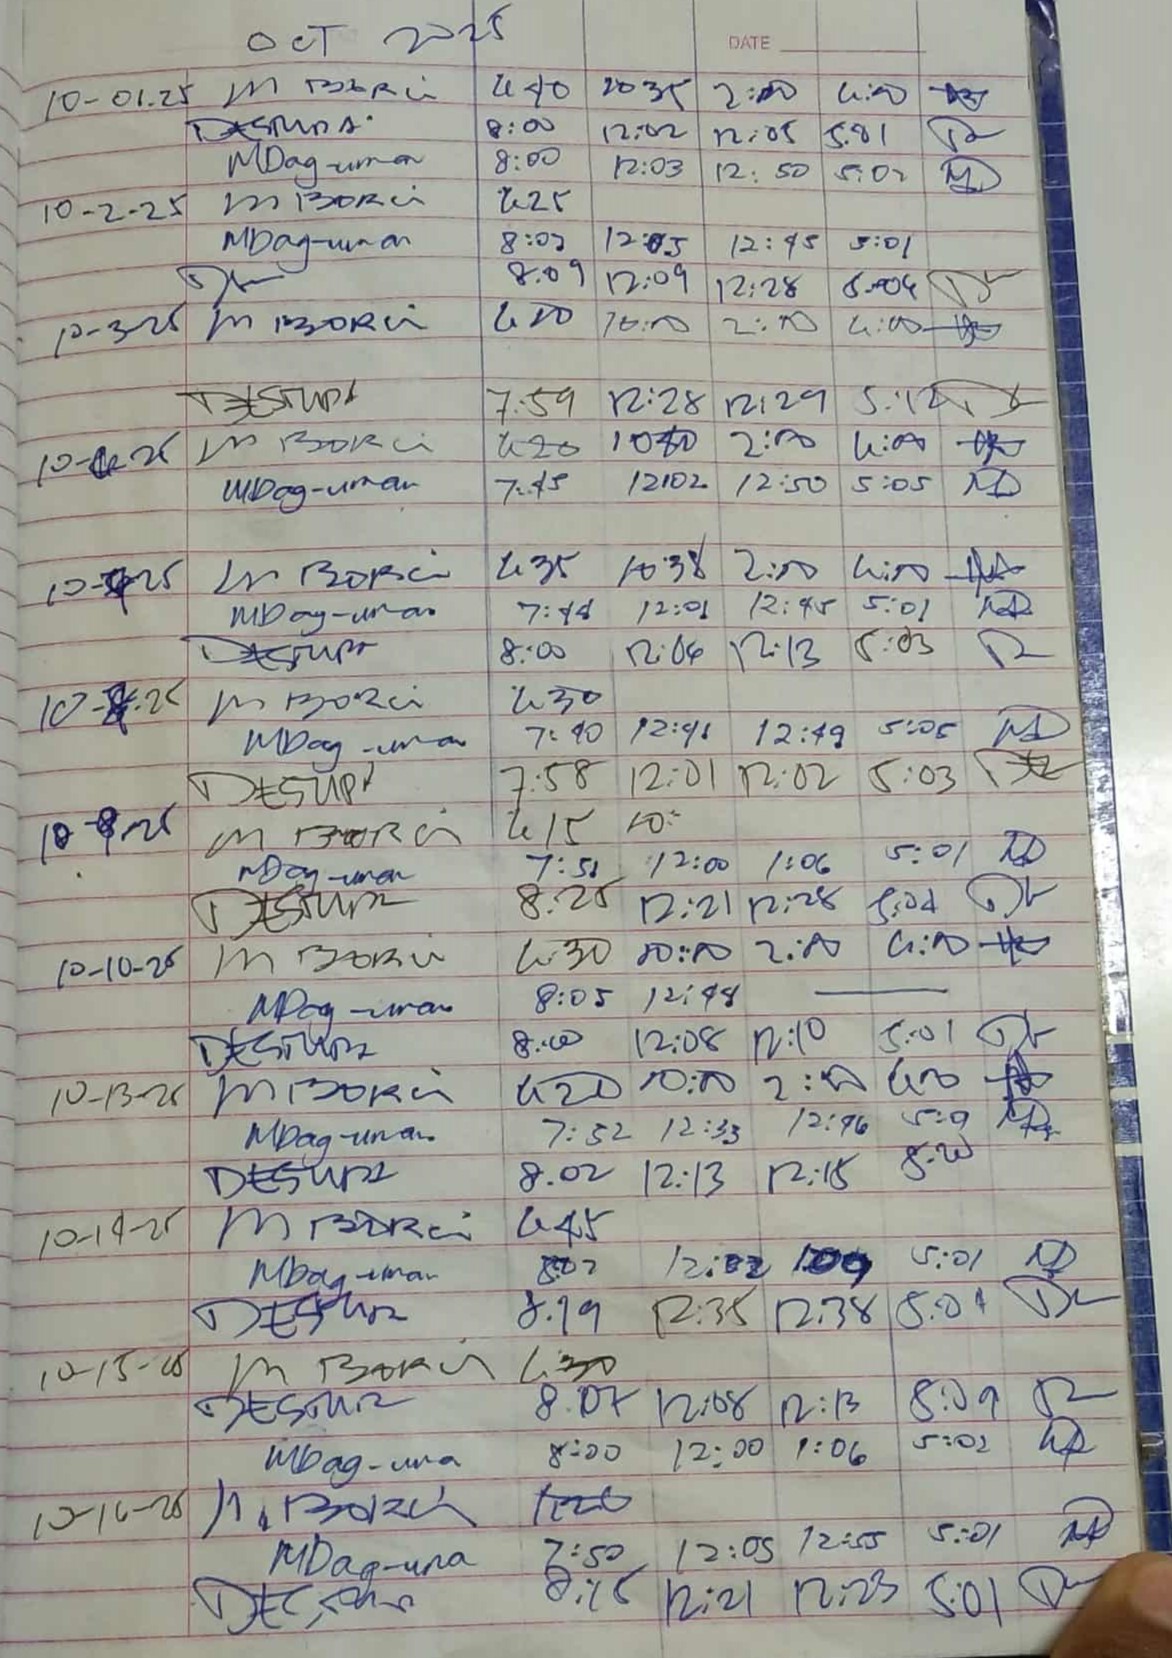 OCT 2025
DATE
10-01-25 M BORCI 6 40 10 35 2:00 4:00
DESTUPA 8:00 12:02 12:05 5:01
MDag-uman 8:00 12:03 12:50 5:02 MD
10-2-25 M BORCI 6 25
MDag-uman 8:02 12:05 12:45 5:01
8:09 12:09 12:28 5:04
10-3-25 M BORCI 10:00 2:00 4:00
DESTUPA 7:59 12:28 12:29 5:12
M BORCI 6 20 2:00 4:00
MDag-uman 7:45 12:02 12:50 5:05 MD
M BORCI 6 35 10 38 2:00 4:00
MDag-uman 7:44 12:01 12:45 5:01 MD
DESTUPA 8:00 12:06 12:13 5:03
M BORCI 6 30
MDag-uman 7:40 12:41 12:49 5:05 MD
DESTUPA 7:58 12:01 12:02 5:03
M BORCI 6 15 10:
MDag-uman 7:51 12:00 1:06 5:01 MD
DESTUPA 8:25 12:21 12:28 5:04
10-10-25 M BORCI 6:30 10:00 2:00 4:00
MDag-uman 8:05 12:48
DESTUPA 8:00 12:08 12:10 5:01
10-13-25 M BORCI 6 20 10:00 2:00 4:00
MDag-uman 7:52 12:33 12:46 MD
DESTUPA 8:02 12:13 12:15 5:20
10-14-25 M BORCI 6 45
MDag-uman 8:02 5:01 MD
DESTUPA 8:19 12:35 12:38 5:01
10-15-25 M BORCI 6:30
DESTUPA 8:07 12:08 12:13 5:09
MDag-una 8:00 12:00 1:06 5:02 MD
10-16-25 M. BORCI
MDag-una 7:50 12:05 12:55 5:01 MD
8:15 12:21 12:23 5:01